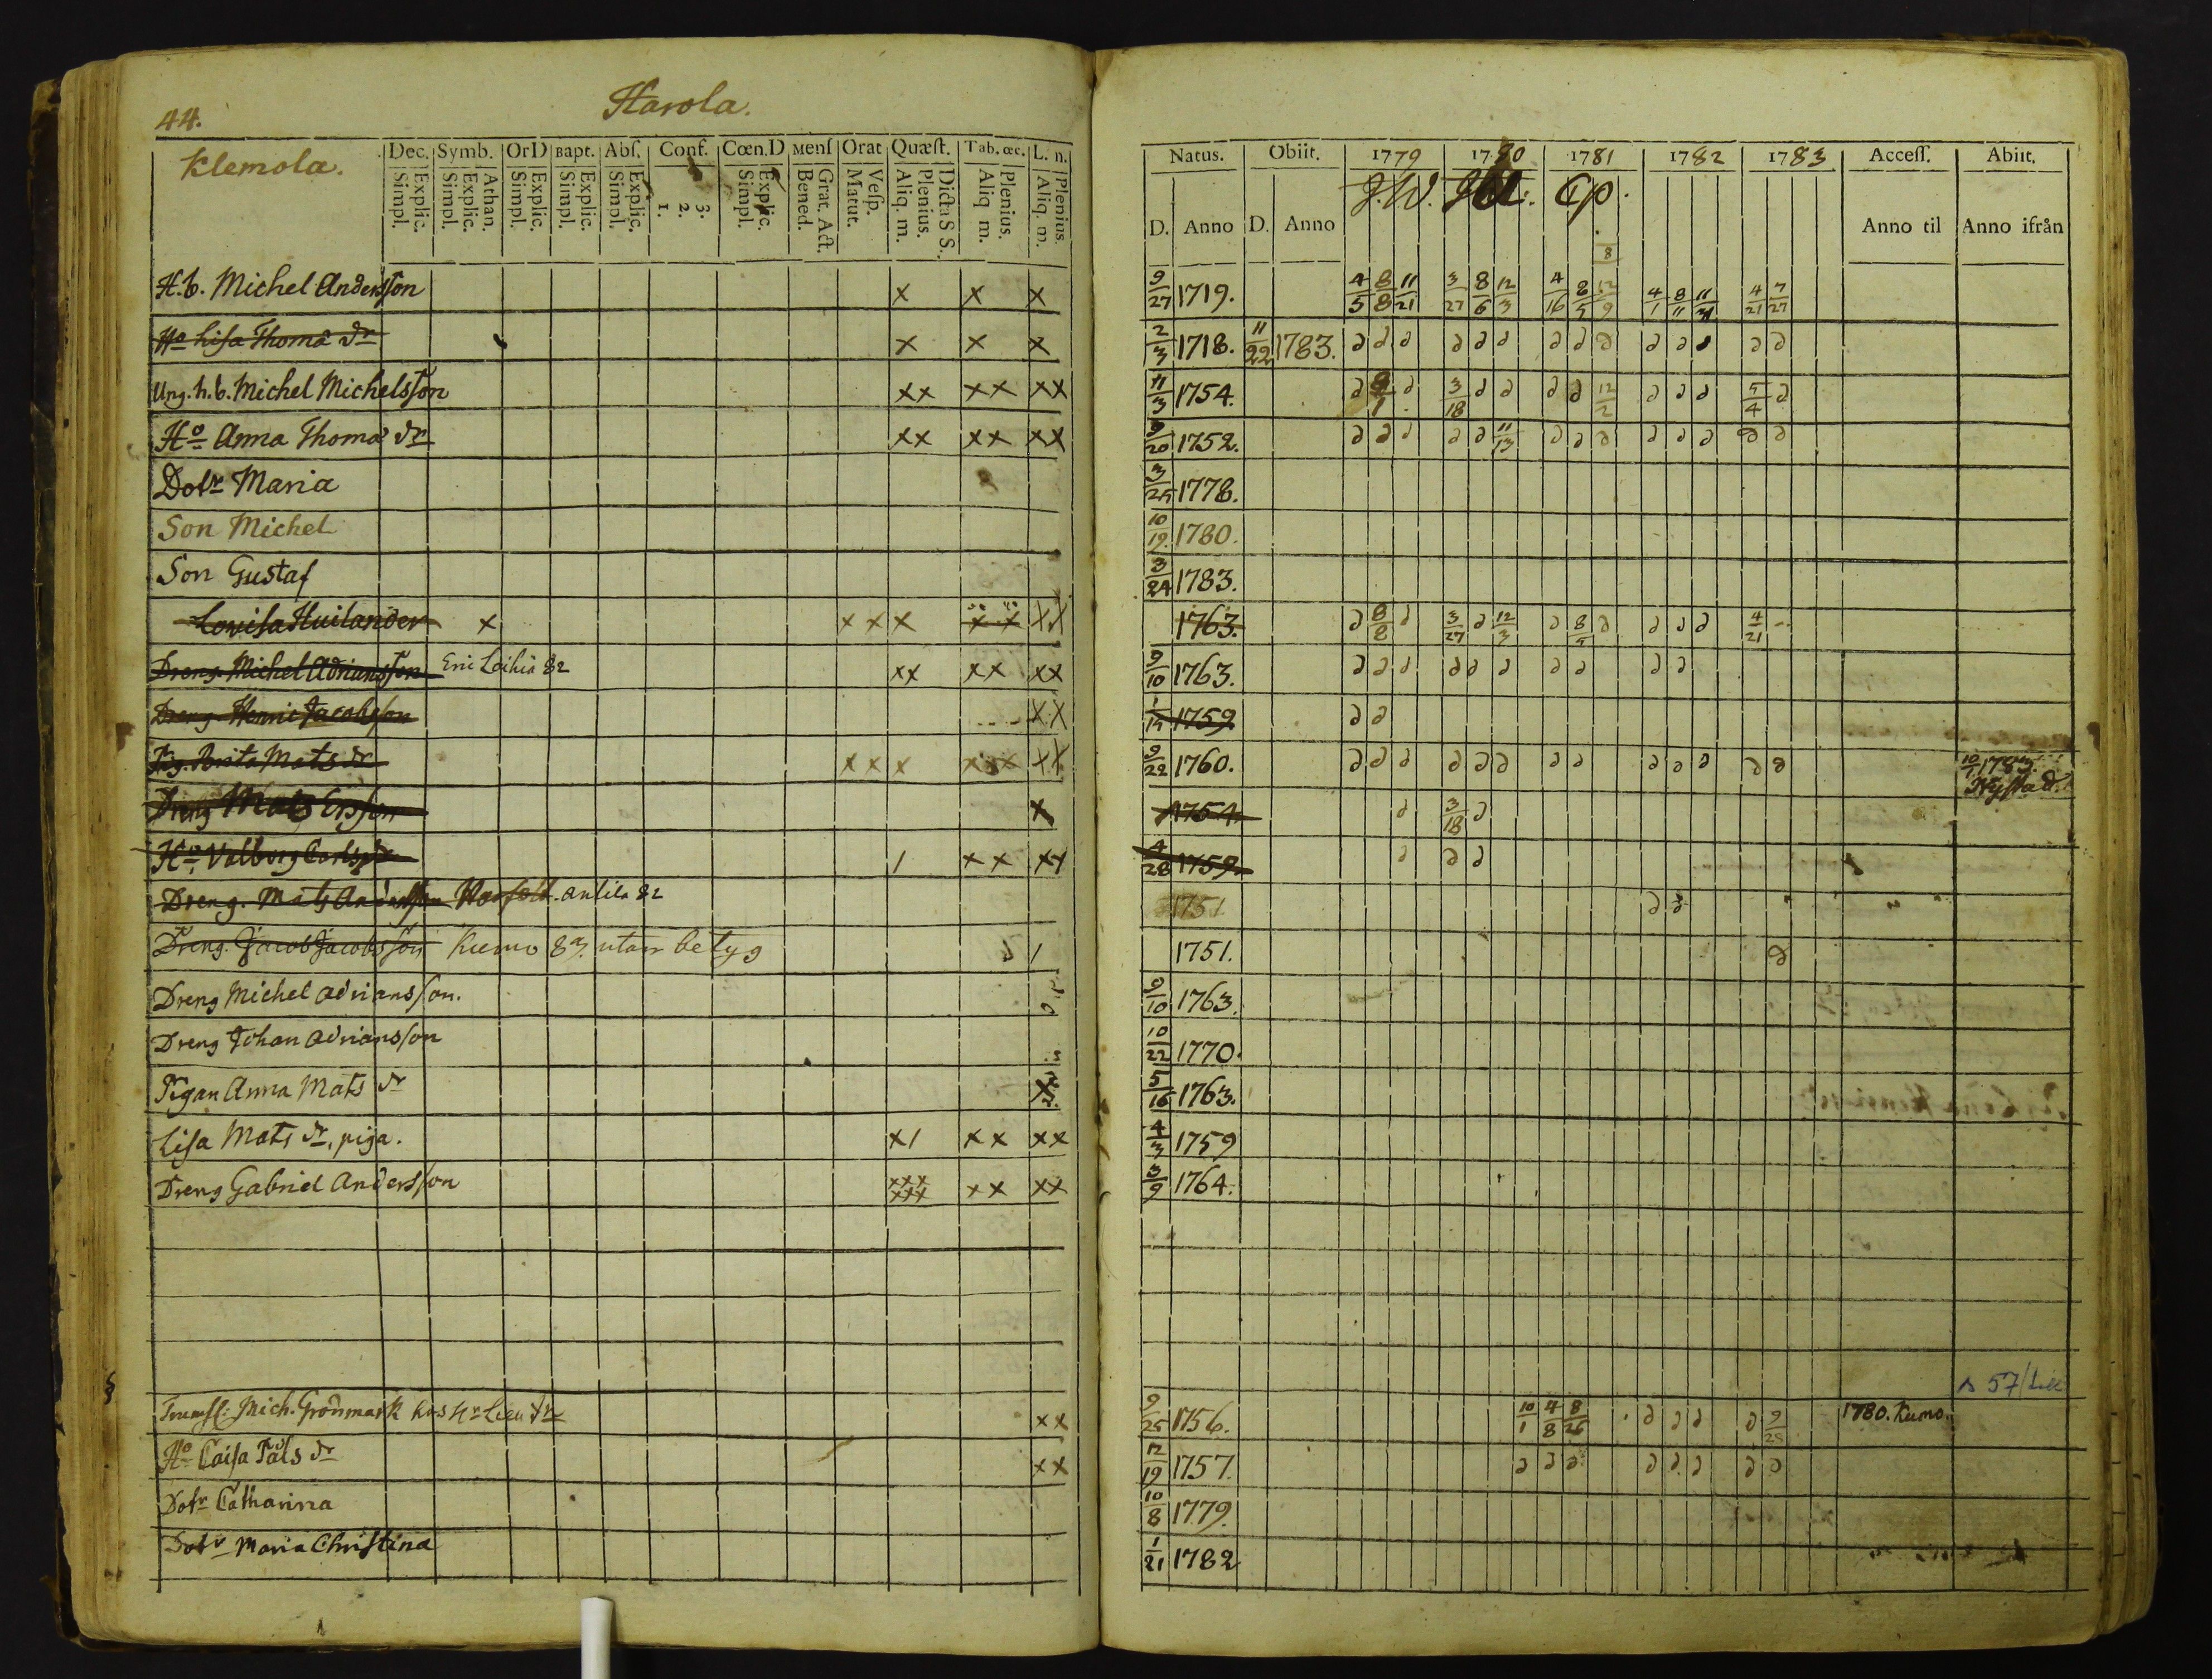 44.
Harola.
Klemola.
Dec. Symb. OrD Bapt. Abſ. Conf. Cœn.D Menſ Orat Quæſt. Tab. œc. L. n.
Explic. Simpl. Athan. Explic. Simpl. Explic. Simpl. Explic. Simpl. Explic. Simpl. 3. 2. 1. Explic. Simpl. Grat. Act. Bened. Veſp. Matut. Dicta S S. Plenius. Aliq. m. Plenius. Aliq m. Plenius. Aliq. m.
Natus. Obiit. 1779 1780 1781 1782 1783 Acceſſ. Abiit.
D. Anno D. Anno J.W. Cp. Anno til Anno ifrån
8
H.b. Michel Andersſon x x x 9/27 1719. 4/5 8/8 11/21 3/27 8/6 12/3 4/16 8/5 12/9 4/1 8/11 11/21 4/21 7/27
Ho Liſa Thomä dr x x x 2/3 1718. 11/22 1783. ∂ ∂ ∂ ∂ ∂ ∂ ∂ ∂ ∂ ∂ ∂ ∂ ∂ ∂
Ung. h.b. Michel Michelsſon xx xx xx 11/3 1754. ∂ 8/1 ∂ 3/18 ∂ ∂ ∂ ∂ 12/2 ∂ ∂ ∂ 5/4 ∂
Ho Anna Thomä dr xx xx xx 9/20 1752. ∂ ∂ ∂ ∂ ∂ 11/13 ∂ ∂ ∂ ∂ ∂ ∂ ∂ ∂
Dotr Maria 3/25 1778.
Son Michel 10/19 1780.
Son Gustaf 3/24 1783.
Lovisa Huilander x x x x x x xx 1763. ∂ 8/8 ∂ 3/27 ∂ 12/3 ∂ 8/5 ∂ ∂ ∂ ∂ 4/21
Dreng Michel Adriansſon Eric Laihia 82 xx xx xx 9/10 1763. ∂ ∂ ∂ ∂ ∂ ∂ ∂ ∂ ∂ ∂
Dreng Henric Jacobsſon xx 1/15 1759 ∂ ∂
Pig. Brita Mats dr x x x xxx xx 9/22 1760. ∂ ∂ ∂ ∂ ∂ ∂ ∂ ∂ ∂ ∂ ∂ ∂ ∂ 10/1 1783. Nystad.
Dreng Mats Ersſon x 1754. ∂ 3/18 ∂
Ho Valborg Carlsdr / xx xx 4/28 1759. ∂ ∂ ∂
Dreng. Mats Andersſon antila 82 1751 ∂ ∂
Dreng. Jacob Jacobsſon Kumo 83. utan betyg / 1751. ∂
Dreng Michel Adriansſon. 9/10 1763.
Dreng Johan Adriansſon 10/22 1770.
Pigan Anna Mats dr x 5/16 1763.
Liſa Mats dr, piga. x/ xx xx 4/3 1759
Dreng Gabriel Andersſon xxx xxx xx xx 3/9 1764.
57
Trumſl: Mich. Grönmark hos Hr Lieutn xx 9/25 1756. 10/1 4/8 8/26 ∂ ∂ ∂ ∂ 9/28 1780. Kumo.
Ho Caisa Påls dr xx 12/19 1757. ∂ ∂ ∂ ∂ ∂ ∂ ∂ ∂
Dotr Catharina 10/8 1779.
Dotr Maria Christina 1/21 1782